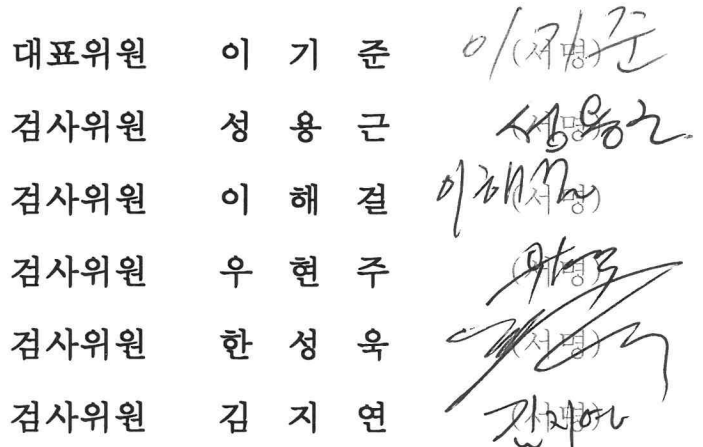 대표위원 이 기 준 (서명) 이기준
검사위원 성 용 근 (서명) 성용근
검사위원 이 해 걸 (서명) 이해걸
검사위원 우 현 주 (서명)
검사위원 한 성 욱 (서명)
검사위원 김 지 연 (서명) 김지연